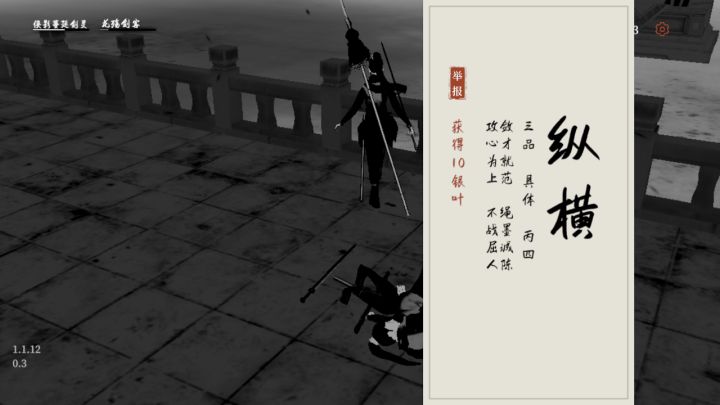 龙瑞剑客
3
纵横
三品 具体 丙四
敛才就范 绳墨诚陈
攻心为上 不战屈人
举报
获得10银叶
1.1.12
0.3